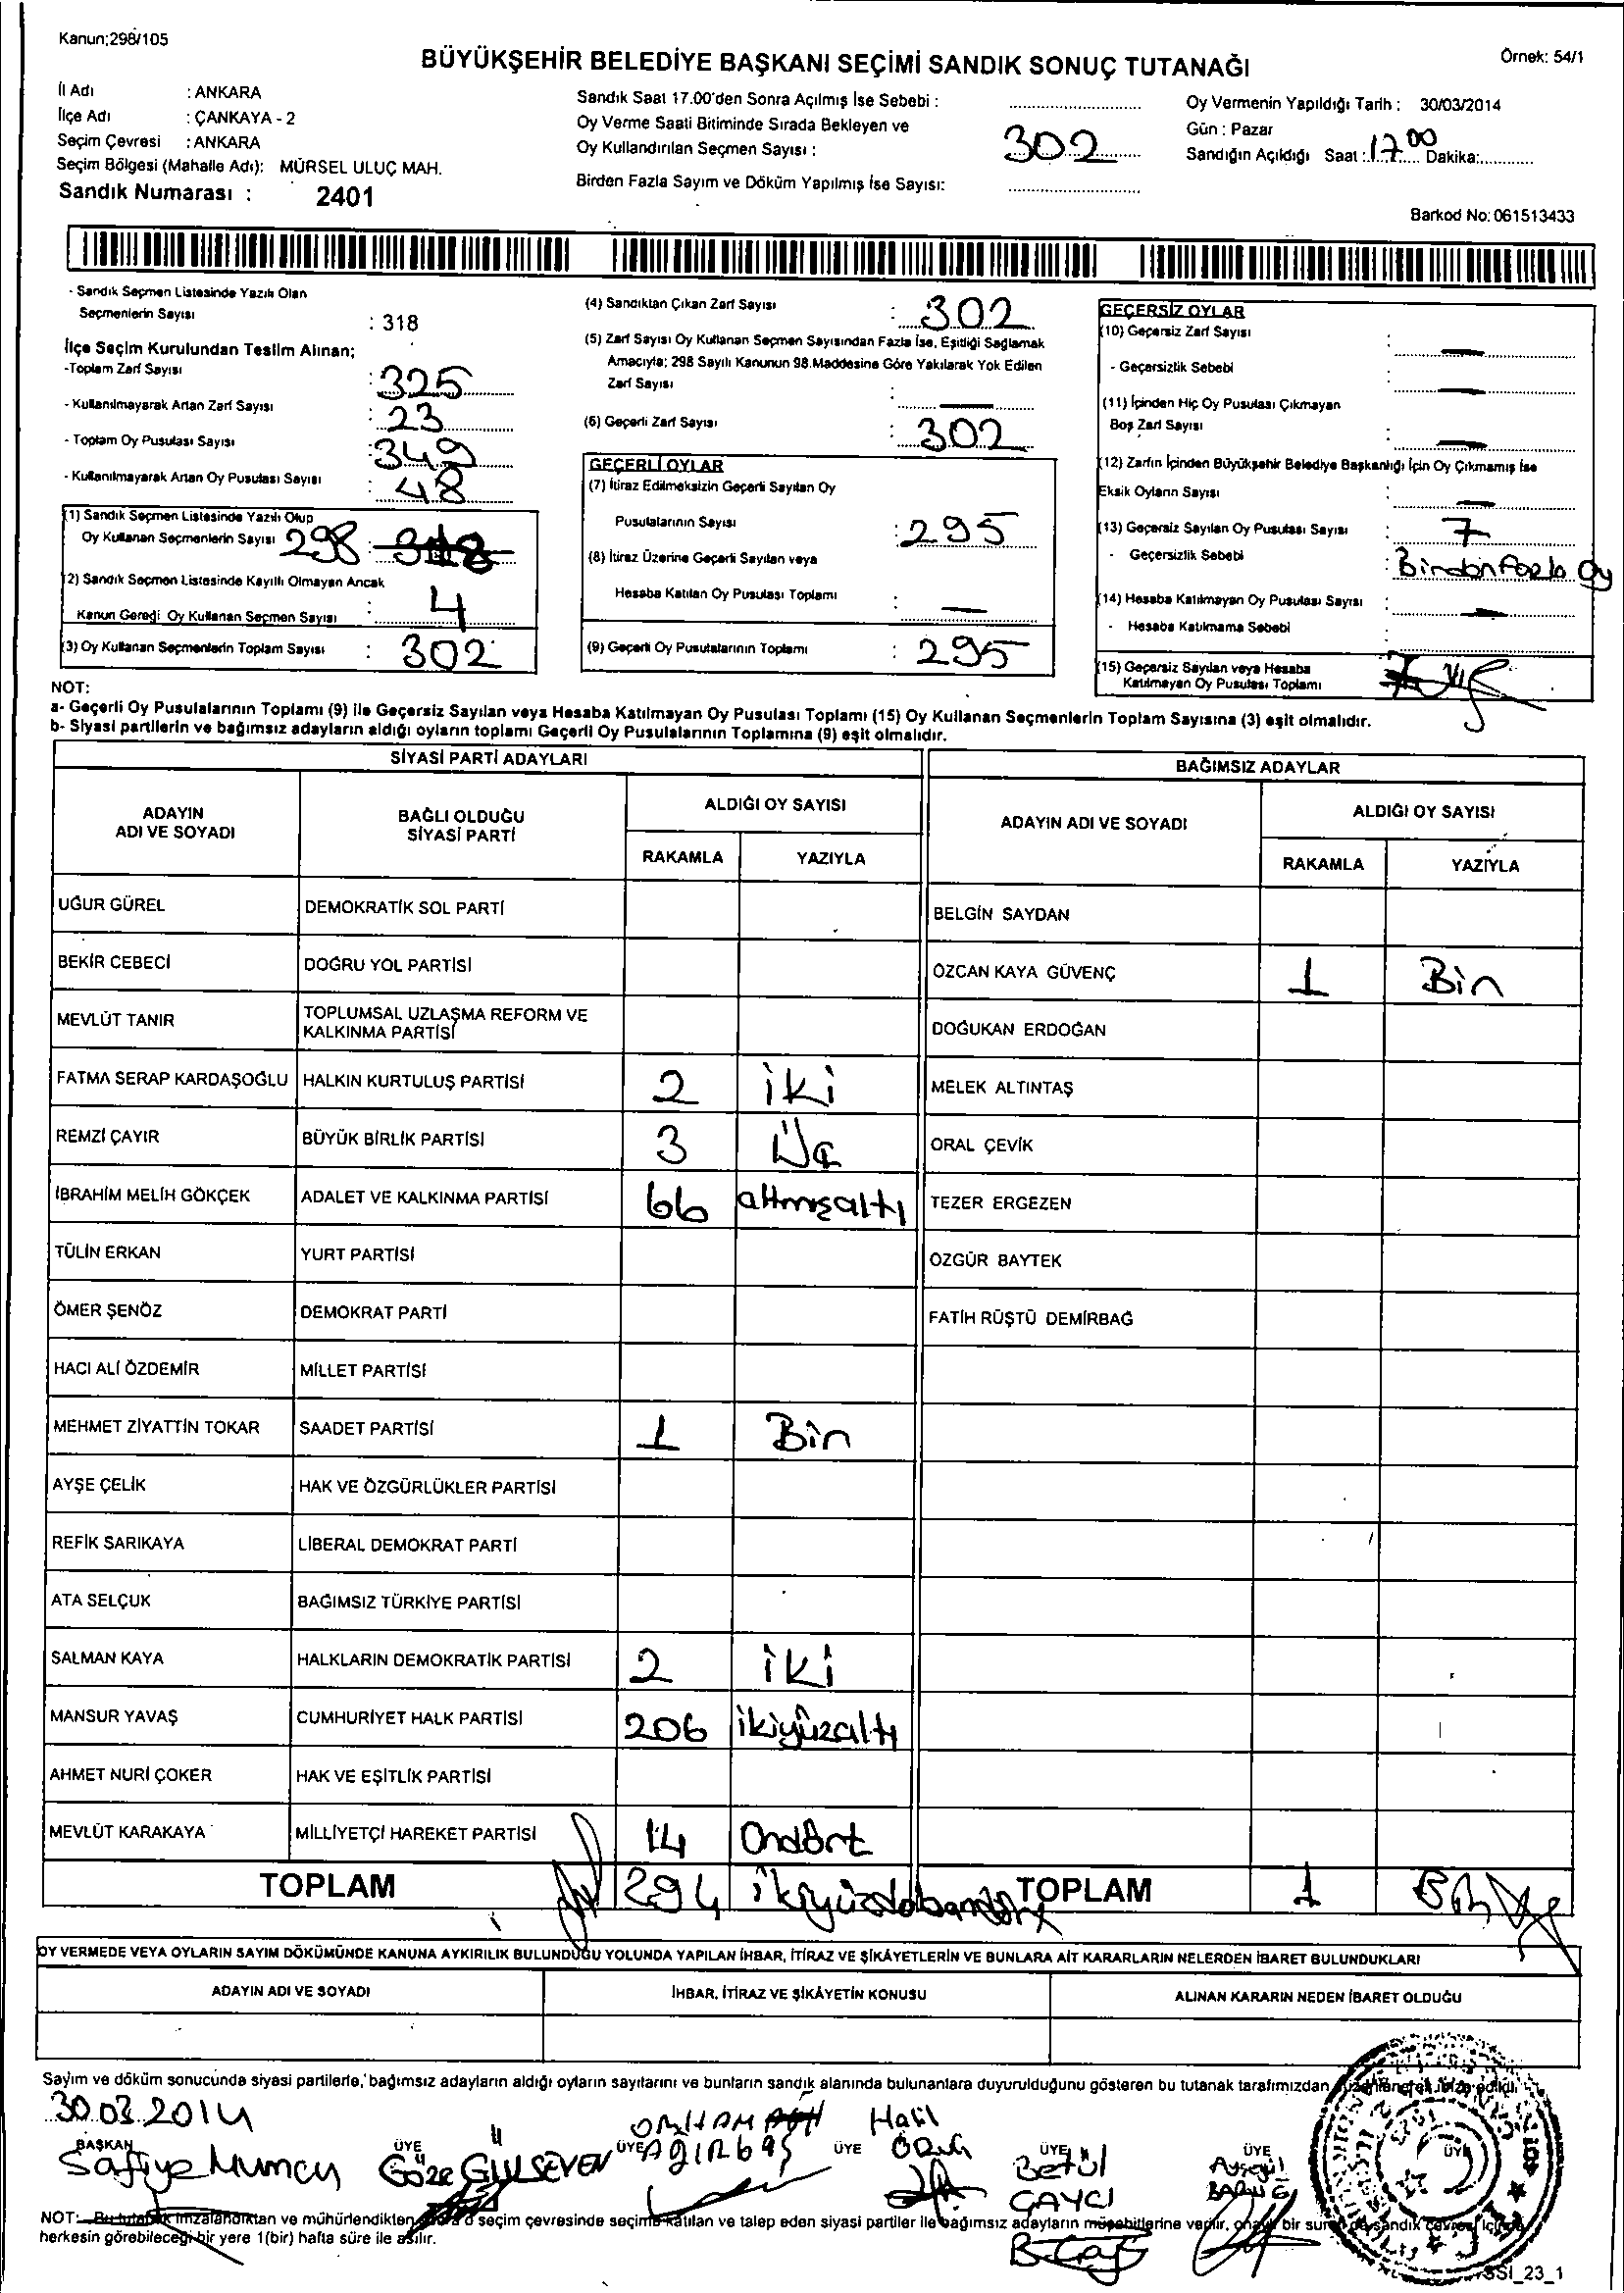 Kanun;298/105
Örnek: 54/1
BÜYÜKŞEHİR BELEDİYE BAŞKANI SEÇİMİ SANDIK SONUÇ TUTANAĞI
İl Adı : ANKARA
İlçe Adı : ÇANKAYA - 2
Seçim Çevresi : ANKARA
Seçim Bölgesi (Mahalle Adı): MÜRSEL ULUÇ MAH.
Sandık Numarası : 2401
Sandık Saat 17.00'den Sonra Açılmış İse Sebebi :
Oy Verme Saati Bitiminde Sırada Bekleyen ve
Oy Kullandırılan Seçmen Sayısı : 302
Birden Fazla Sayım ve Döküm Yapılmış İse Sayısı:
Oy Vermenin Yapıldığı Tarih : 30/03/2014
Gün : Pazar
Sandığın Açıldığı Saat : 17 00 Dakika:
Barkod No: 061513433
- Sandık Seçmen Listesinde Yazılı Olan
Seçmenlerin Sayısı : 318
İlçe Seçim Kurulundan Teslim Alınan;
-Toplam Zarf Sayısı : 325
- Kullanılmayarak Artan Zarf Sayısı : 23
- Toplam Oy Pusulası Sayısı : 349
- Kullanılmayarak Artan Oy Pusulası Sayısı : 48
(1) Sandık Seçmen Listesinde Yazılı Olup
Oy Kullanan Seçmenlerin Sayısı 298
(2) Sandık Seçmen Listesinde Kayıtlı Olmayan Ancak
Kanun Gereği Oy Kullanan Seçmen Sayısı : 4
(3) Oy Kullanan Seçmenlerin Toplam Sayısı : 302
(4) Sandıktan Çıkan Zarf Sayısı : 302
(5) Zarf Sayısı Oy Kullanan Seçmen Sayısından Fazla İse, Eşitliği Sağlamak
Amacıyla; 298 Sayılı Kanunun 98.Maddesine Göre Yakılarak Yok Edilen
Zarf Sayısı : —
(6) Geçerli Zarf Sayısı : 302
GEÇERLİ OYLAR
(7) İtiraz Edilmeksizin Geçerli Sayılan Oy
Pusulalarının Sayısı : 295
(8) İtiraz Üzerine Geçerli Sayılan veya
Hesaba Katılan Oy Pusulası Toplamı : —
(9) Geçerli Oy Pusulalarının Toplamı : 295
GEÇERSİZ OYLAR
(10) Geçersiz Zarf Sayısı : —
- Geçersizlik Sebebi : —
(11) İçinden Hiç Oy Pusulası Çıkmayan
Boş Zarf Sayısı : —
(12) Zarfın İçinden Büyükşehir Belediye Başkanlığı İçin Oy Çıkmamış İse
Eksik Oyların Sayısı : —
(13) Geçersiz Sayılan Oy Pusulası Sayısı : 7
- Geçersizlik Sebebi : Birden Fazla Oy
(14) Hesaba Katılmayan Oy Pusulası Sayısı : —
- Hesaba Katılmama Sebebi :
(15) Geçersiz Sayılan veya Hesaba
Katılmayan Oy Pusulası Toplamı 7
NOT:
a- Geçerli Oy Pusulalarının Toplamı (9) ile Geçersiz Sayılan veya Hesaba Katılmayan Oy Pusulası Toplamı (15) Oy Kullanan Seçmenlerin Toplam Sayısına (3) eşit olmalıdır.
b- Siyasi partilerin ve bağımsız adayların aldığı oyların toplamı Geçerli Oy Pusulalarının Toplamına (9) eşit olmalıdır.
SİYASİ PARTİ ADAYLARI
ADAYIN ADI VE SOYADI
BAĞLI OLDUĞU SİYASİ PARTİ
ALDIĞI OY SAYISI
RAKAMLA YAZIYLA
UĞUR GÜREL DEMOKRATİK SOL PARTİ
BEKİR CEBECİ DOĞRU YOL PARTİSİ
MEVLÜT TANIR TOPLUMSAL UZLAŞMA REFORM VE
KALKINMA PARTİSİ
FATMA SERAP KARDAŞOĞLU HALKIN KURTULUŞ PARTİSİ 2 iki
REMZİ ÇAYIR BÜYÜK BİRLİK PARTİSİ 3 Üç
İBRAHİM MELİH GÖKÇEK ADALET VE KALKINMA PARTİSİ 66 altmışaltı
TÜLİN ERKAN YURT PARTİSİ
ÖMER ŞENÖZ DEMOKRAT PARTİ
HACI ALİ ÖZDEMİR MİLLET PARTİSİ
MEHMET ZİYATTİN TOKAR SAADET PARTİSİ 1 Bin
AYŞE ÇELİK HAK VE ÖZGÜRLÜKLER PARTİSİ
REFİK SARIKAYA LİBERAL DEMOKRAT PARTİ
ATA SELÇUK BAĞIMSIZ TÜRKİYE PARTİSİ
SALMAN KAYA HALKLARIN DEMOKRATİK PARTİSİ 2 iki
MANSUR YAVAŞ CUMHURİYET HALK PARTİSİ 206 ikiyüzaltı
AHMET NURİ ÇOKER HAK VE EŞİTLİK PARTİSİ
MEVLÜT KARAKAYA MİLLİYETÇİ HAREKET PARTİSİ 14 Ondört
TOPLAM 294
BAĞIMSIZ ADAYLAR
ADAYIN ADI VE SOYADI
ALDIĞI OY SAYISI
RAKAMLA YAZIYLA
BELGİN SAYDAN
ÖZCAN KAYA GÜVENÇ 1 Bin
DOĞUKAN ERDOĞAN
MELEK ALTINTAŞ
ORAL ÇEVİK
TEZER ERGEZEN
ÖZGÜR BAYTEK
FATİH RÜŞTÜ DEMİRBAĞ
TOPLAM 1
OY VERMEDE VEYA OYLARIN SAYIM DÖKÜMÜNDE KANUNA AYKIRILIK BULUNDUĞU YOLUNDA YAPILAN İHBAR, İTİRAZ VE ŞİKÂYETLERİN VE BUNLARA AİT KARARLARIN NELERDEN İBARET BULUNDUKLARI
ADAYIN ADI VE SOYADI İHBAR, İTİRAZ VE ŞİKÂYETİN KONUSU ALINAN KARARIN NEDEN İBARET OLDUĞU
Sayım ve döküm sonucunda siyasi partilerle, bağımsız adayların aldığı oyların sayılarını ve bunların sandık alanında bulunanlara duyurulduğunu gösteren bu tutanak tarafımızdan düzenlenerek imza edildi.
30.03.2014
BAŞKAN ÜYE ÜYE ÜYE ÜYE ÜYE ÜYE
Safiye Mumcu
Göze GÜLSEVEN
ORHAN
AĞIRBAŞ
Halil
Betül
ÇAYCI
Ayşegül
NOT: Bu tutanak imzalandıktan ve mühürlendikten sonra o seçim çevresinde seçime katılan ve talep eden siyasi partiler ile bağımsız adayların müşahitlerine verilir, onaylı bir sureti de sandık çevresi içinde
herkesin görebileceği bir yere 1(bir) hafta süre ile asılır.
SSI_23_1